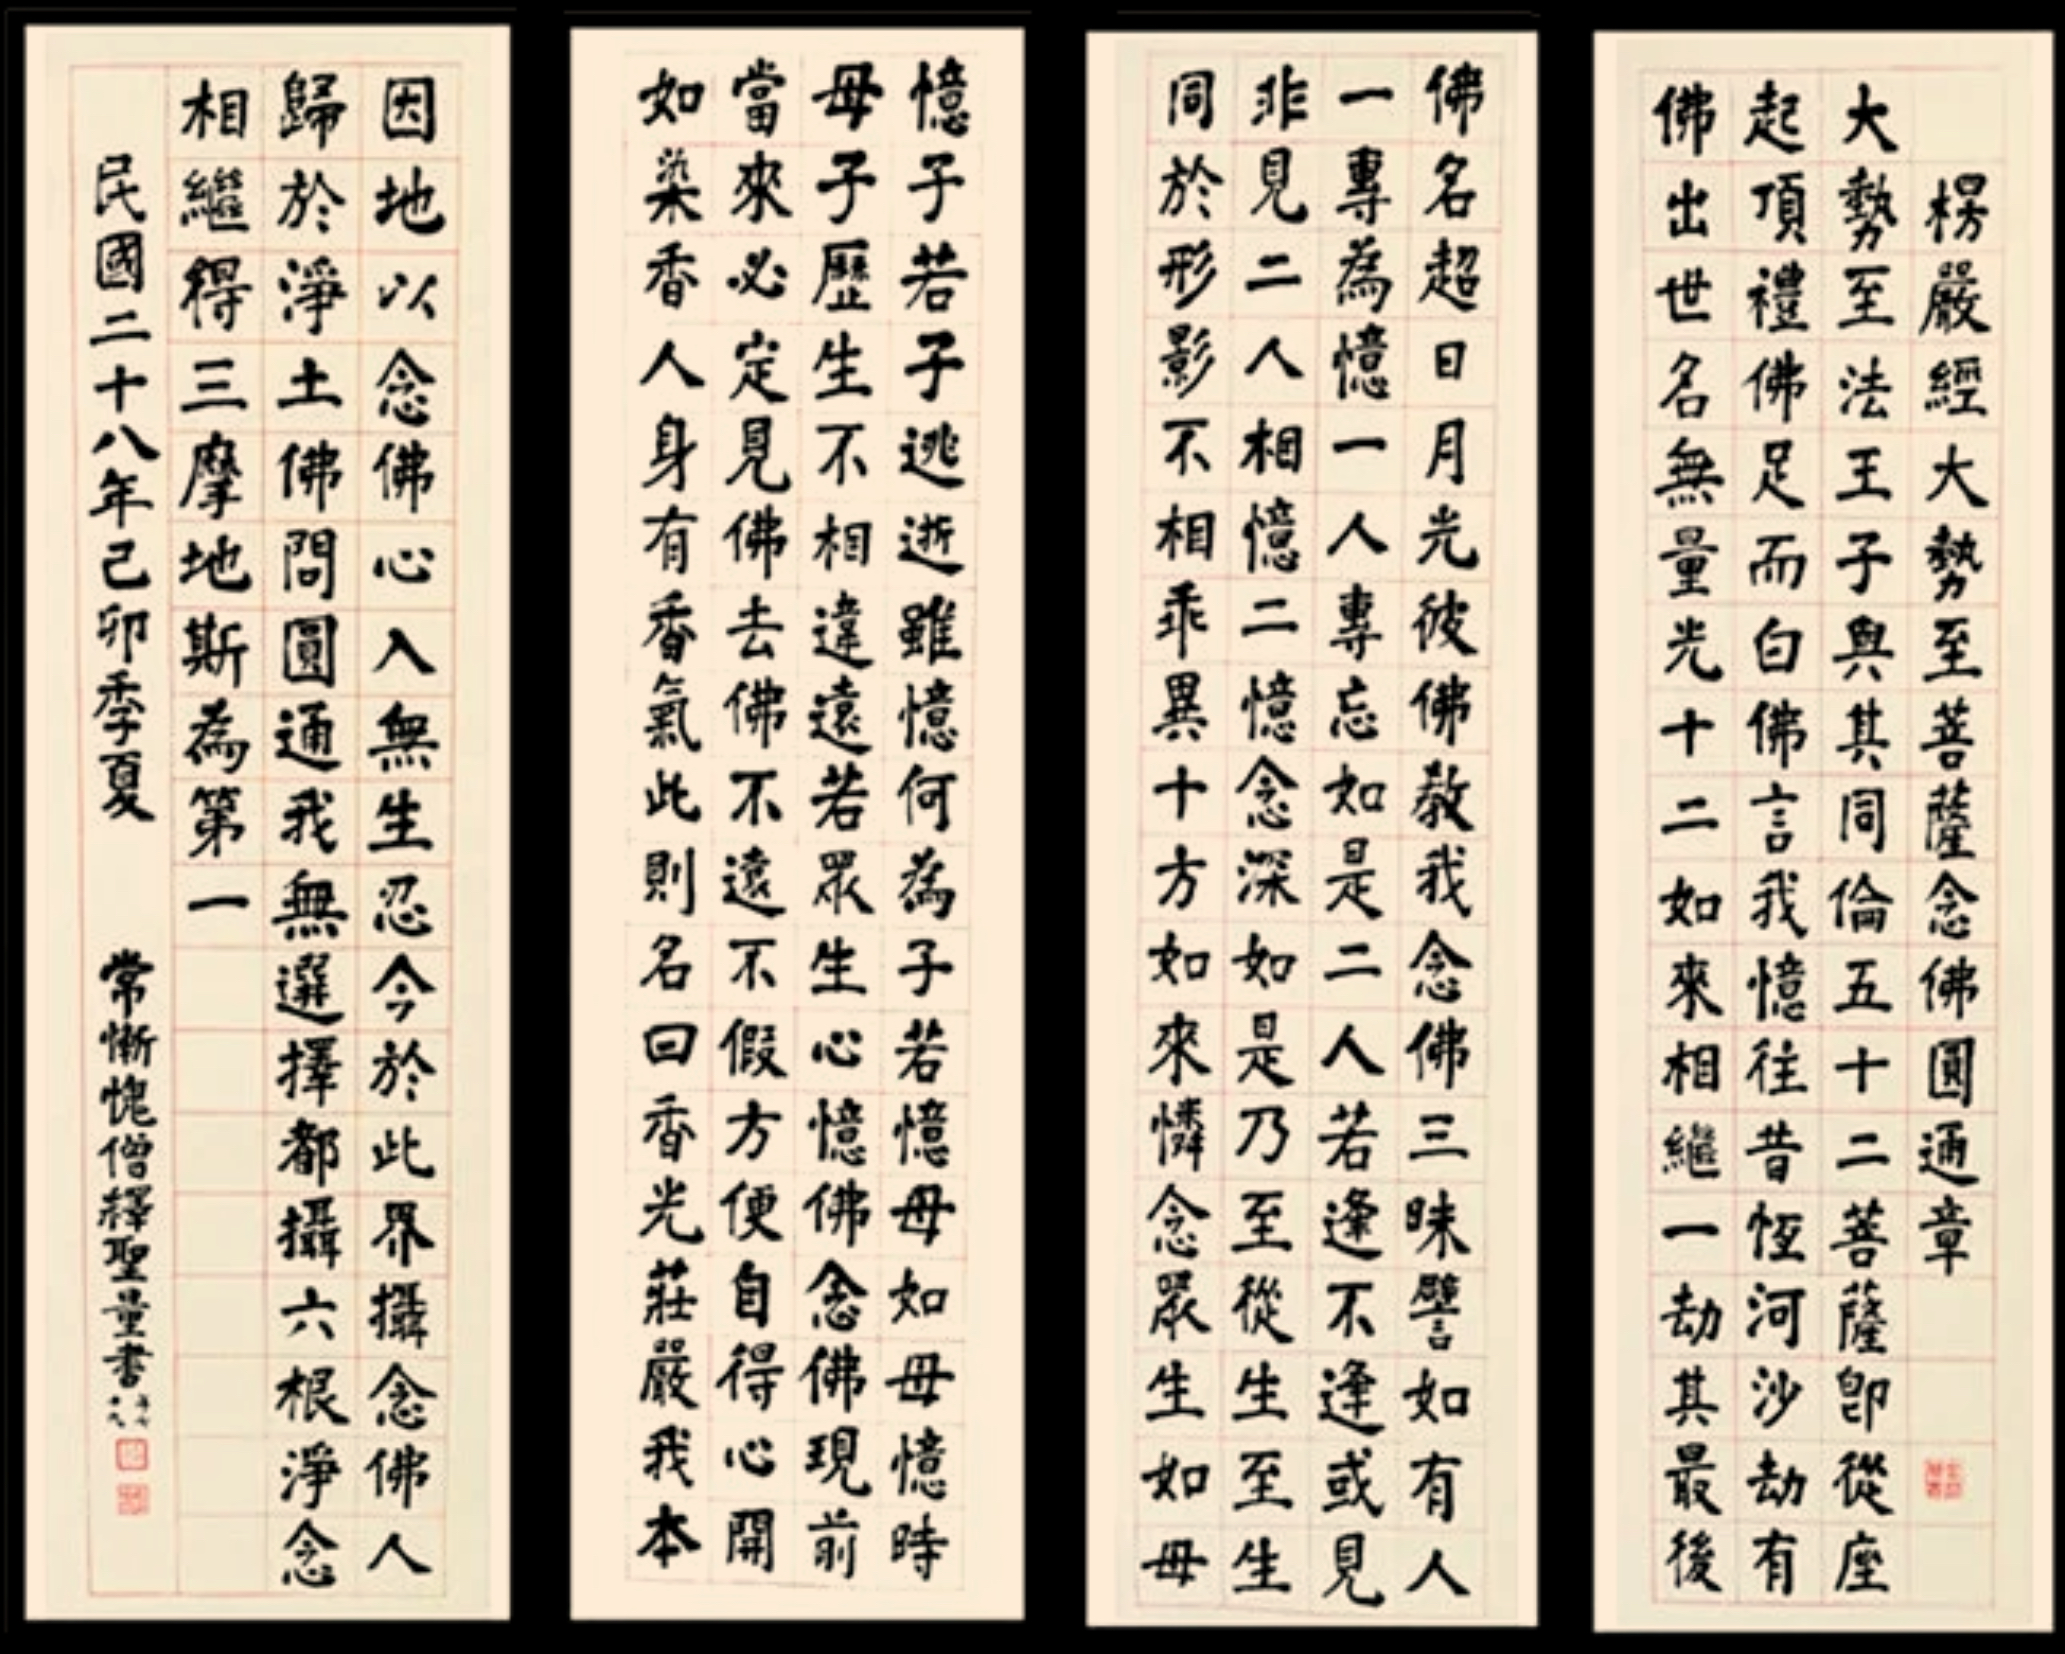 楞嚴經大勢至菩薩念佛圓通章
大勢至法王子與其同倫五十二菩薩即從座
起頂禮佛足而白佛言我憶往昔恆河沙劫有
佛出世名無量光十二如來相繼一劫其最後
佛名超日月光彼佛教我念佛三昧譬如有人
一專為憶一人專忘如是二人若逢不逢或見
非見二人相憶二憶念深如是乃至從生至生
同於形影不相乖異十方如來憐念眾生如母
憶子若子逃逝雖憶何為子若憶母如母憶時
母子歷生不相違遠若眾生心憶佛念佛現前
當來必定見佛去佛不遠不假方便自得心開
如染香人身有香氣此則名曰香光莊嚴我本
因地以念佛心入無生忍今於此界攝念佛人
歸於淨土佛問圓通我無選擇都攝六根淨念
相繼得三摩地斯為第一
民國二十八年己卯季夏 常慚愧僧釋聖量書